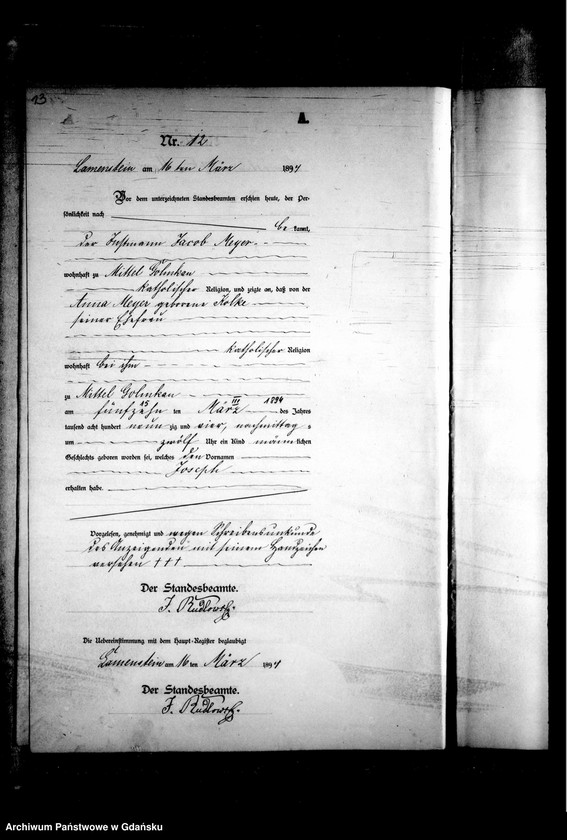 13
A.
Nr. 12
Lamenstein am 16 ten März 1894
Vor dem unterzeichneten Standesbeamten erschien heute, der Per-
sönlichkeit nach
be kannt,
der Instmann Jacob Meyer
wohnhaft zu Mittel Golmkau
katholischer Religion, und zeigte an, daß von der
Anna Meyer geborene Kolke
seiner Ehefrau
katholischer Religion
wohnhaft bei ihm
zu Mittel Golmkau
15 III 1894
am fünfzehn ten März des Jahres
tausend acht hundert neun zig und vier, nachmittag s
um zwölf Uhr ein Kind männ lichen
Geschlechts geboren worden sei, welches den Vornamen
Joseph
erhalten habe.
Vorgelesen, genehmigt und wegen Schreibensunkunde
des Anzeigenden mit seinem Handzeichen
versehen †††
Der Standesbeamte.
J.
Die Uebereinstimmung mit dem Haupt-Register beglaubigt
Lamenstein am 16 ten März 1894
Der Standesbeamte.
J.
Archiwum Państwowe w Gdańsku